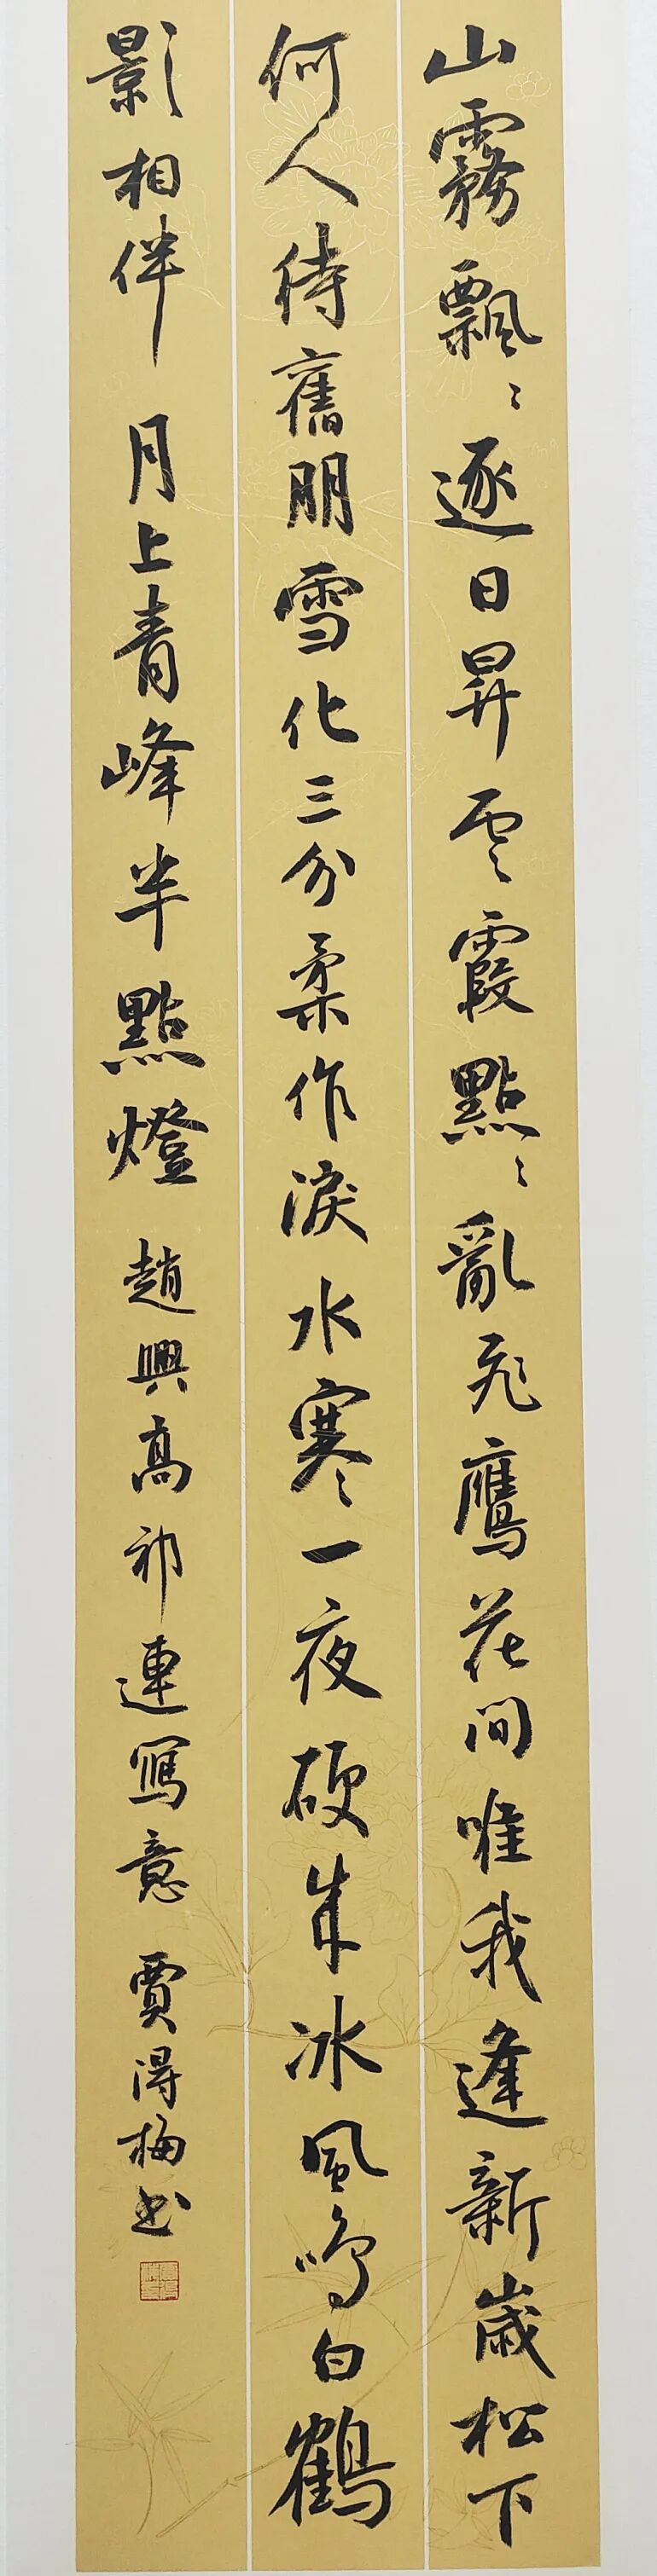 山霧飄〻逐日昇雲霞點〻亂飛鷹花間唯我逢新歲松下
何人待舊朋雪化三分柔作淚水寒〻一夜硬成冰風鳴白鶴
影相伴月上青峰半點燈趙興高祁連寫意賈得梅書